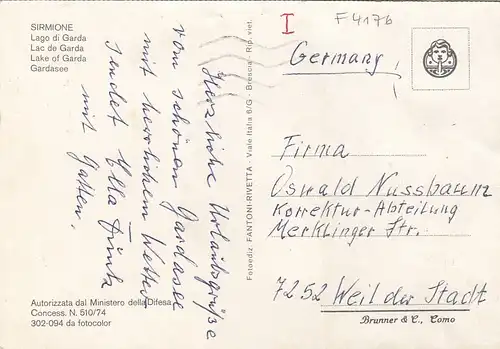 SIRMIONE
Lago di Garda
Lac de Garda
Lake of Garda
Gardasee
Herzliche Urlaubsgrüße
vom schönen Gardasee
mit herrlichem Wetter
sendet Ella
mit Gatten.
Autorizzata dal Ministero della Difesa
Concess. N. 510/74
302-094 da fotocolor
Fotoediz FANTONI-RIVETTA - Viale Italia 6/G - Brescia - Rip. viet.
I
F4176
Germany!
Firma
Oswald Nussbaum
Korrektur-Abteilung
Merklinger Str.
7252 Weil der Stadt
Brunner & C., Como